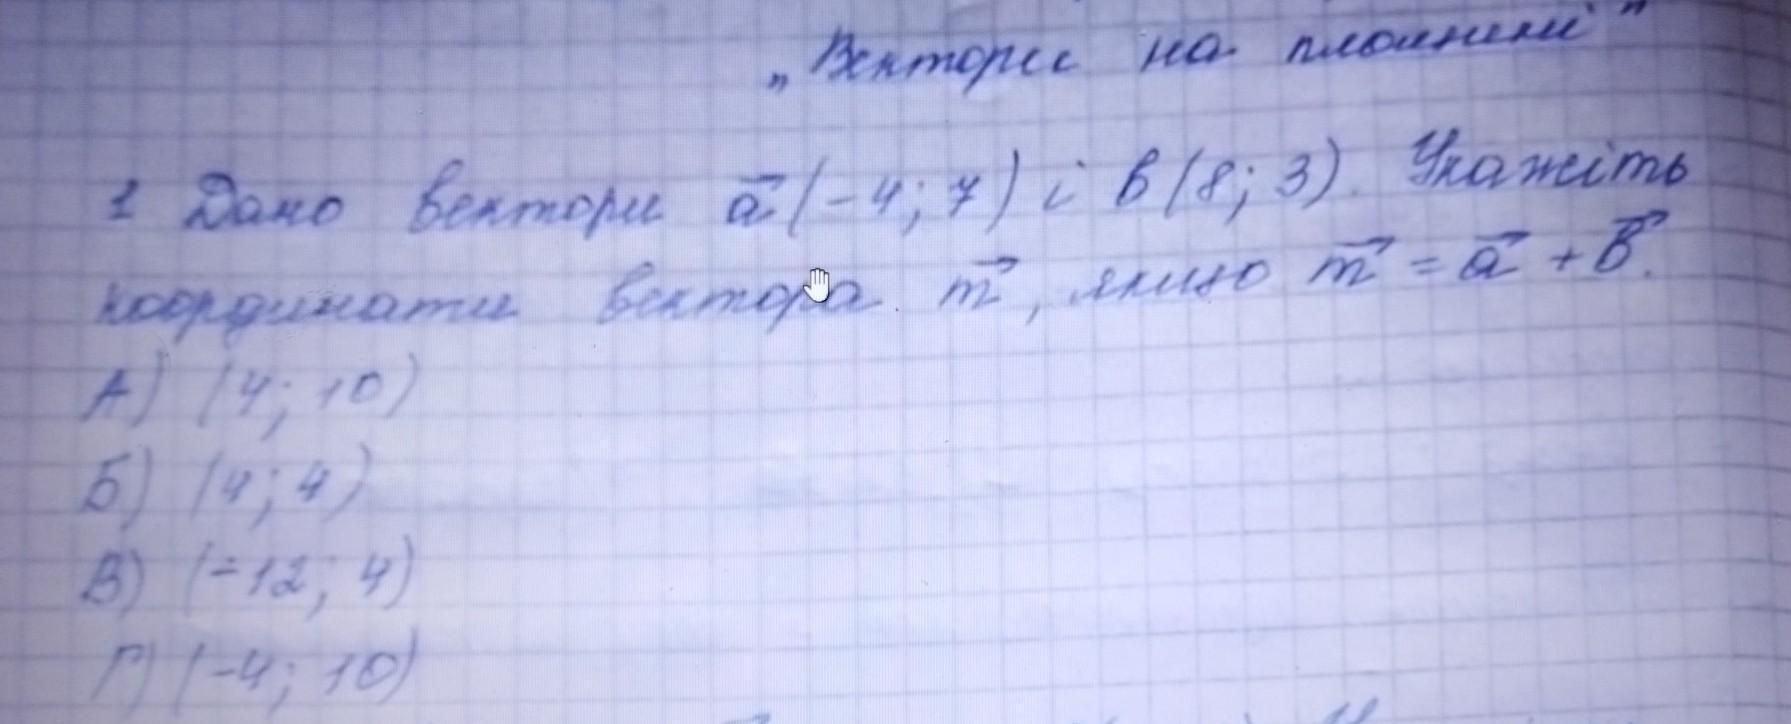 „Вектори на площині"
1 Дано вектори a⃗ (-4; 7) і b (8; 3). Укажіть
координати вектора m⃗, якщо m⃗ = a⃗ + b⃗.
А) (4; 10)
Б) (4; 4)
В) (-12; 4)
Г) (-4; 10)